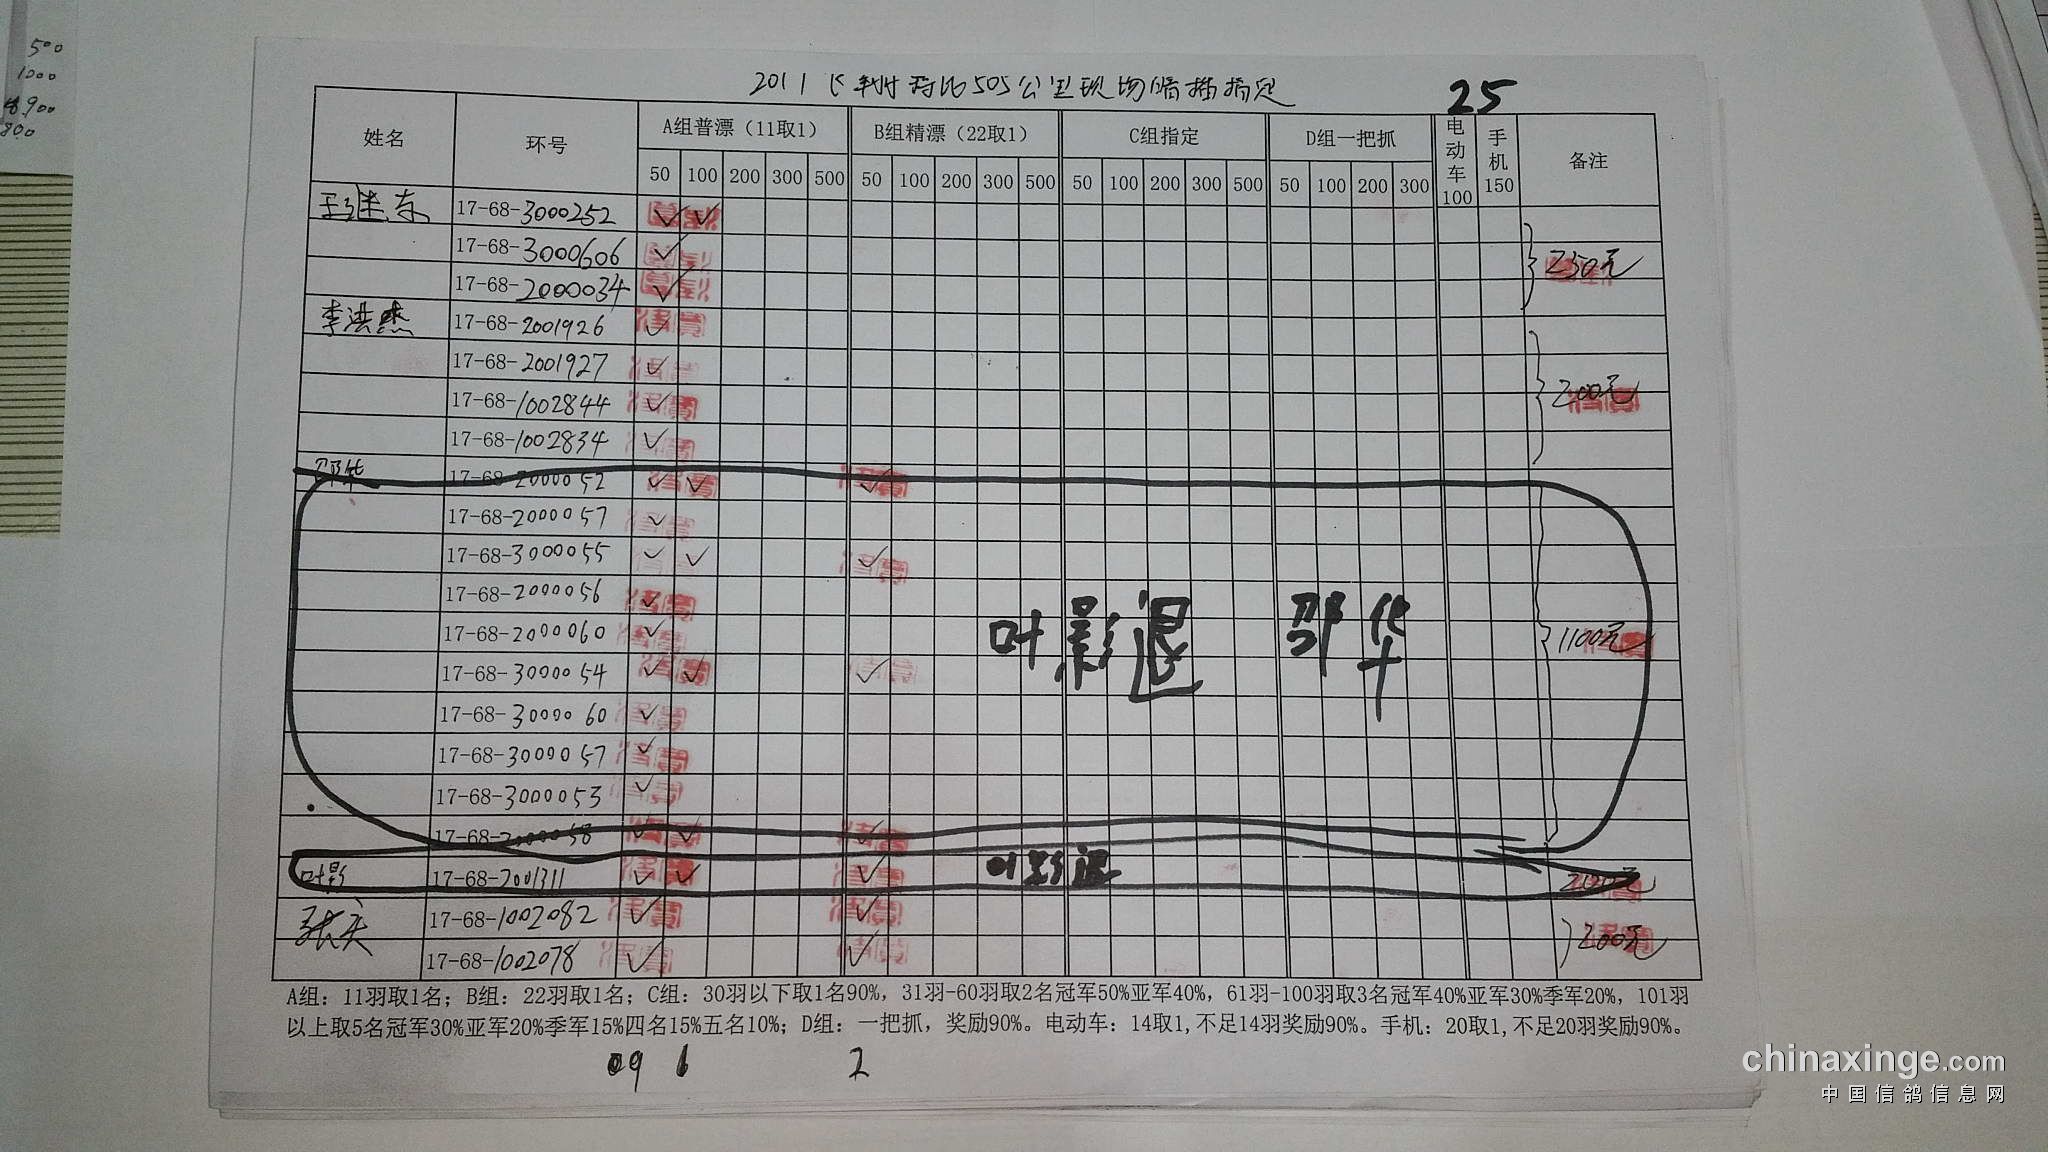 500
1000
900
800
2011 505公里现场 指定
25
姓名 环号 A组普漂（11取1） B组精漂（22取1） C组指定 D组一把抓 电动车100 手机150 备注
50 100 200 300 500 50 100 200 300 500 50 100 200 300 500 50 100 200 300
王继东 17-68-3000252 ✓ ✓
17-68-3000606 ✓ 250元
17-68-2000034 ✓
李洪杰 17-68-2001926 ✓
17-68-2001927 ✓
17-68-1002844 ✓ 200元
17-68-1002834 ✓
邵华 17-68-2000052 ✓ ✓ ✓
17-68-2000057 ✓
17-68-3000055 ✓ ✓ ✓
17-68-2000056 ✓
17-68-2000060 ✓ 叶影退 邵华 1100元
17-68-3000054 ✓ ✓ ✓
17-68-3000060 ✓
17-68-3000057 ✓
17-68-3000053 ✓
17-68-2000058 ✓ ✓ ✓
叶影 17-68-2001311 ✓ ✓ ✓ 叶影退
17-68-1002082 ✓ ✓ 200元
17-68-1002078 ✓ ✓
A组：11羽取1名；B组：22羽取1名；C组：30羽以下取1名90%，31羽-60羽取2名冠军50%亚军40%，61羽-100羽取3名冠军40%亚军30%季军20%，101羽
以上取5名冠军30%亚军20%季军15%四名15%五名10%；D组：一把抓，奖励90%。电动车：14取1,不足14羽奖励90%。手机：20取1,不足20羽奖励90%。
09 6 2
chinaxinge.com
中国信鸽信息网